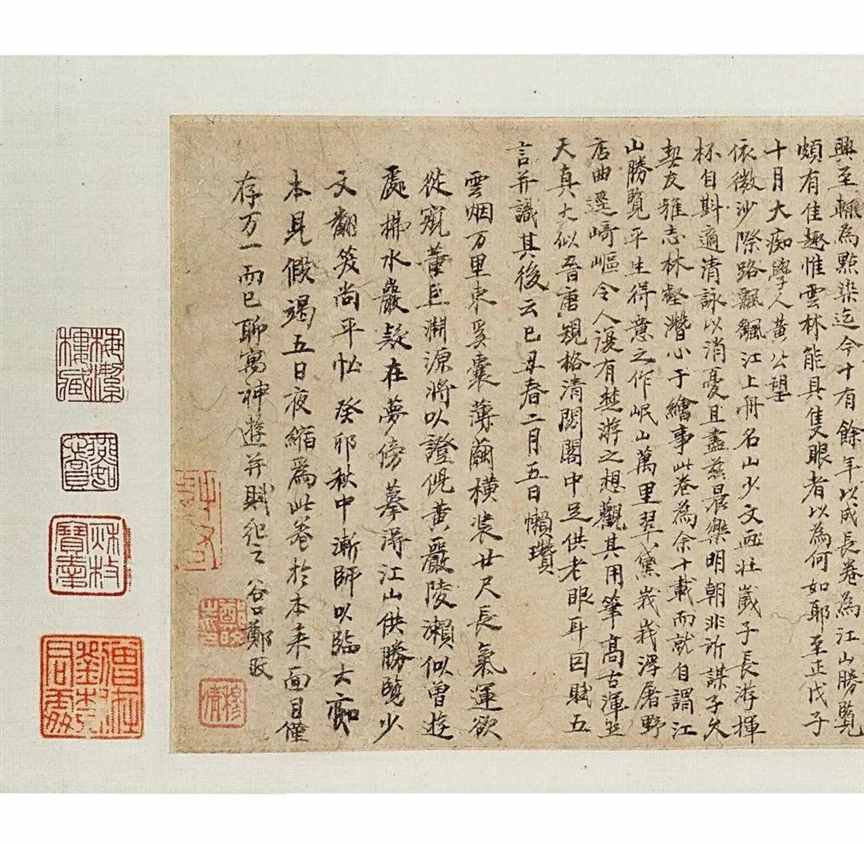 興至輒為點染迄今十有餘年以成長卷為江山勝覽
頗有佳趣惟雲林能具隻眼者以為何如耶至正戊子
十月大痴學人黃公望
依微沙際路飄颻江上舟名山少文畫壯歲子長游揮
杯自斟適清詠以消憂且盡茲晨樂明朝非所謀子久
契友雅志林壑潛心于繪事此卷為余十載而就自謂江
山勝覽平生得意之作岷山萬里翠黛峩峩浮屠野
店曲邊崎嶇令人復有楚游之想觀其用筆高古渾然
天真大似晉唐規格清閟閣中足供老眼耳因賦五
言并識其後云己丑春二月五日懶瓚
雲烟万里束奚囊薄繭橫裝廿尺長氣運欲
從窺董巨淵源將以證倪黃嚴陵瀨似曾遊
處拂水巖疑在夢傍摹得江山供勝覽少
文翻笈尚平忙癸卯秋中漸師以臨大痴
本見假竭五日夜縮為此卷於本來面目僅
存万一而已聊寓神遊并賦紀之谷口鄭旼